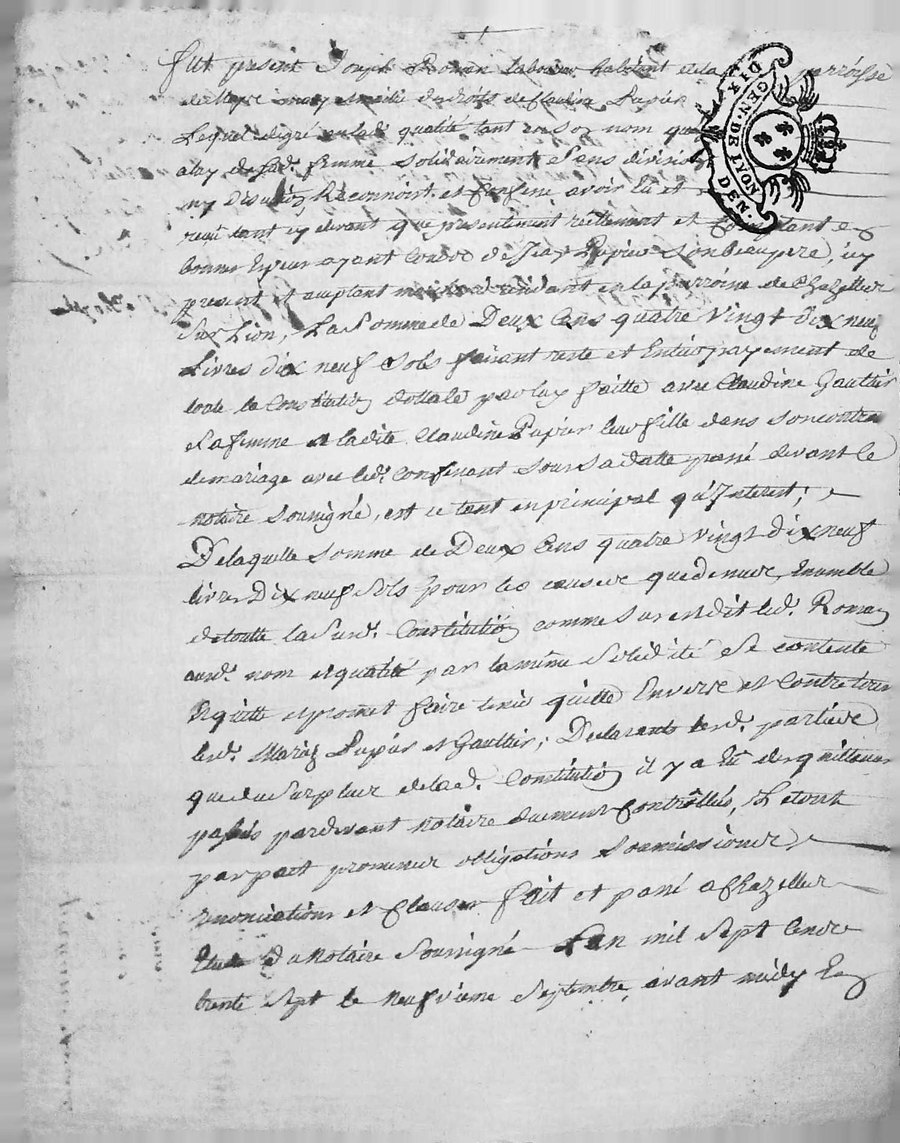 Fut present Joseph Roman laboureur habitant en la perroisse
de Meys mary et maitre des droits de Claudine Pupier
Lequel de gré en lad. qualité tant en son nom que
de lad. femme solidairement sans division
ny discution Reconnoist et Confesse avoir eu et
receu tant cy devant que presentement reellement et Comptant en
bonnes Especes ayant Cours de Jean Pupier son beaupere, icy
present et acceptant residant en la perroisse de Chazelles
sur Lion, La Somme de Deux Cens quatre Vingt dix neuf
Livres dix neuf sols faisant reste et Entier payement de
toute la Constitution dottale par luy faitte avec Claudine Gaultier
sa femme a ladite Claudine Pupier leur fille dans son contract
de mariage avec led. Confessant sous sa datte passé devant le
notaire soussigné, et ce tant en principal qu'Interest;
De laquelle somme de Deux Cens quatre Vingt Dix neuf
livres Dix neuf sols pour les causes que dessus, Ensemble
de toutte la susd. Constitution comme sus en dit led. Roman
ausd. nom et qualité par la même solidité se contente
Et quitte et promet faire tenir quitte Envers et Contre tous
lesd. Mariez Pupier et Gaultier; Declarants lesd. parties
que du surplus de lad. Constitution il y a eu des quittances
passés pardevant notaire duement Controllés,
par part promesses obligations soumissions
renonciations et Clauses Fait et passé a Chazelles
Etude du Notaire soussigné Lan mil sept Cens
trente sept le neufvième septembre, avant midy En
GEN. DE LYON
DIX DEN.